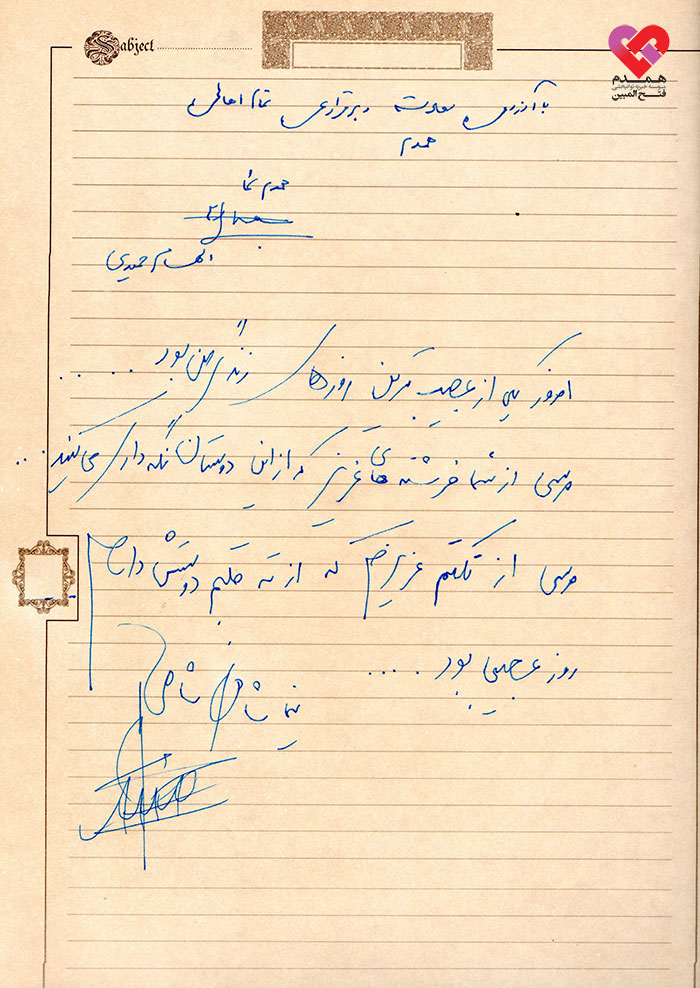 Sabject
همدم
موسسه خیریه توانبخشی
فتح المبین
با آرزوی سعادت و برقراری تمام اهالی
همدم
همدم شما
الهام حمیدی
امروز یکی از عجیب ترین روزهای زندگی من بود .....
مرسی از شما فرشته های عزیز که از این دوستان نگه داری می کنید ...
مرسی از تکتم عزیزم که از ته قلبم دوستش دارم
روز عجیبی بود .....
نیما شاهرخ شاهی